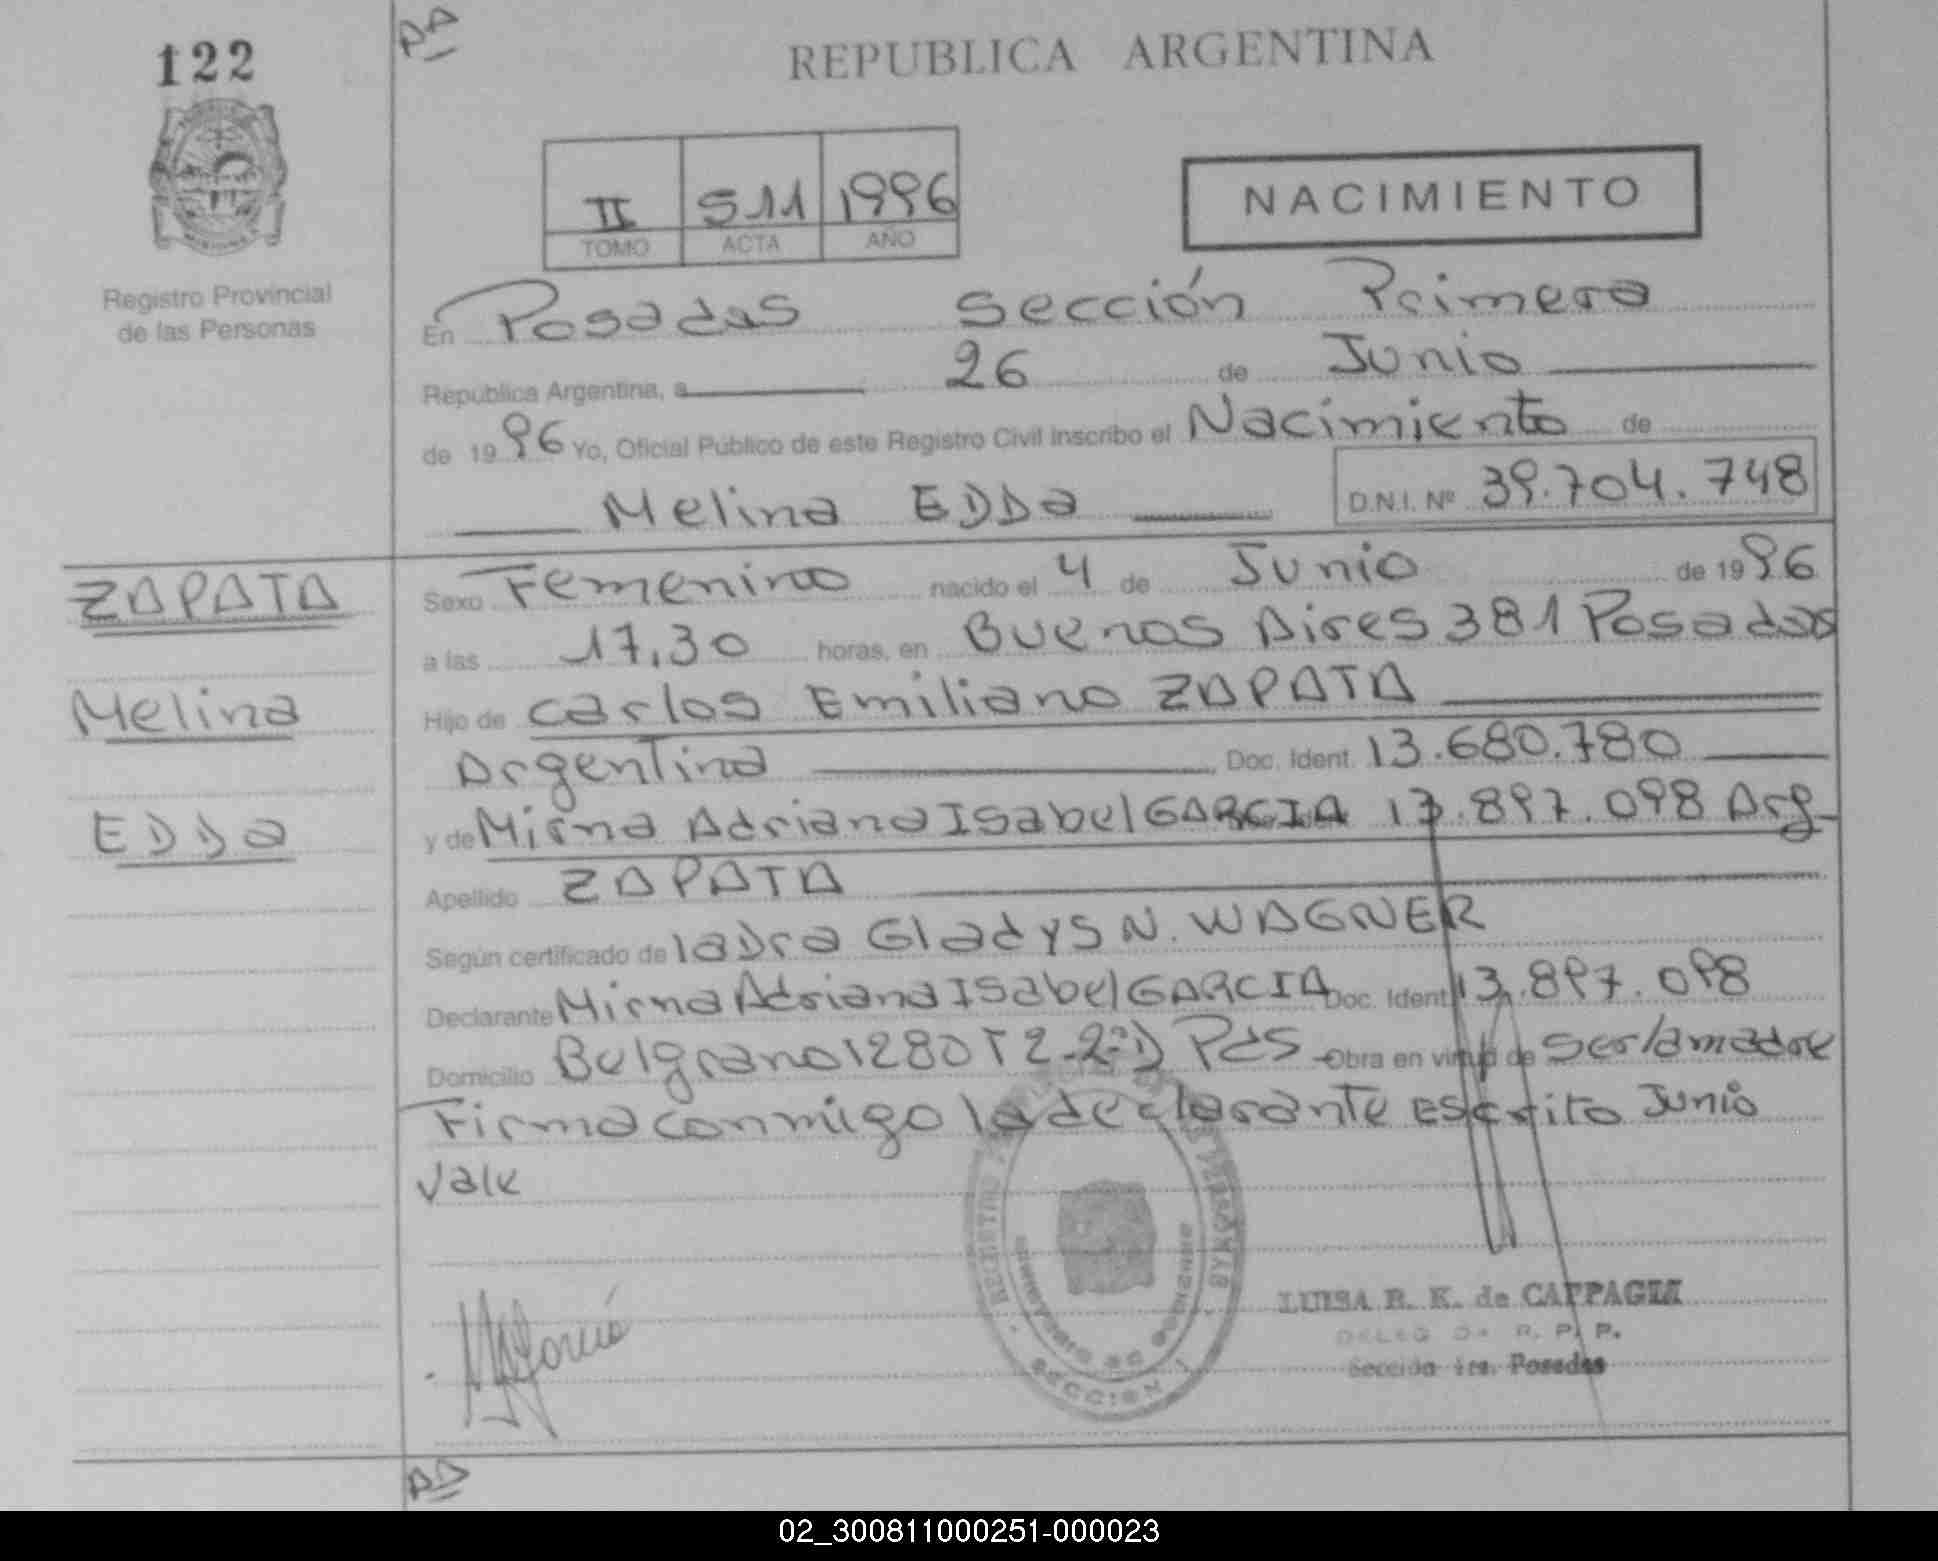 122
AA
REPUBLICA ARGENTINA
II 511 1996
TOMO ACTA AÑO
NACIMIENTO
Registro Provincial
de las Personas
En Posadas Sección Primera
República Argentina, a 26 de Junio
de 1996 Yo, Oficial Público de este Registro Civil inscribo el Nacimiento de
Melina EDDa D.N.I. Nº 39.704.748
ZAPATA
Melina
EDDa
Sexo Femenino nacido el 4 de Junio de 1996
a las 17,30 horas, en Buenos Aires 381 Posadas
Hijo de Carlos Emiliano ZAPATA
Argentina Doc. Ident. 13.680.780
y de Mirna Adriana Isabel GARCIA 13.897.098 Arg
Apellido ZAPATA
Según certificado de la Dra Gladys N. WAGNER
Declarante Mirna Adriana Isabel GARCIA Doc. Ident 13.897.098
Domicilio Belgrano 1280 T2-2º D Pdas Obra en virtud de ser la madre
Firma conmigo la declarante escrito Junio
Vale
LUISA R. K. de CAPPAGLI
R. P. P.
Sección 1ra. Posadas
SECCION 1
AA
02_300811000251-000023